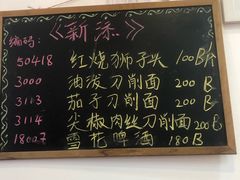 《新添》
编码:
50418 红烧狮子头 100B/个
3000 油泼刀削面 200B
3113 茄子刀削面 200B
3114 尖椒肉丝刀削面 200B
18007 雪花啤酒 180B